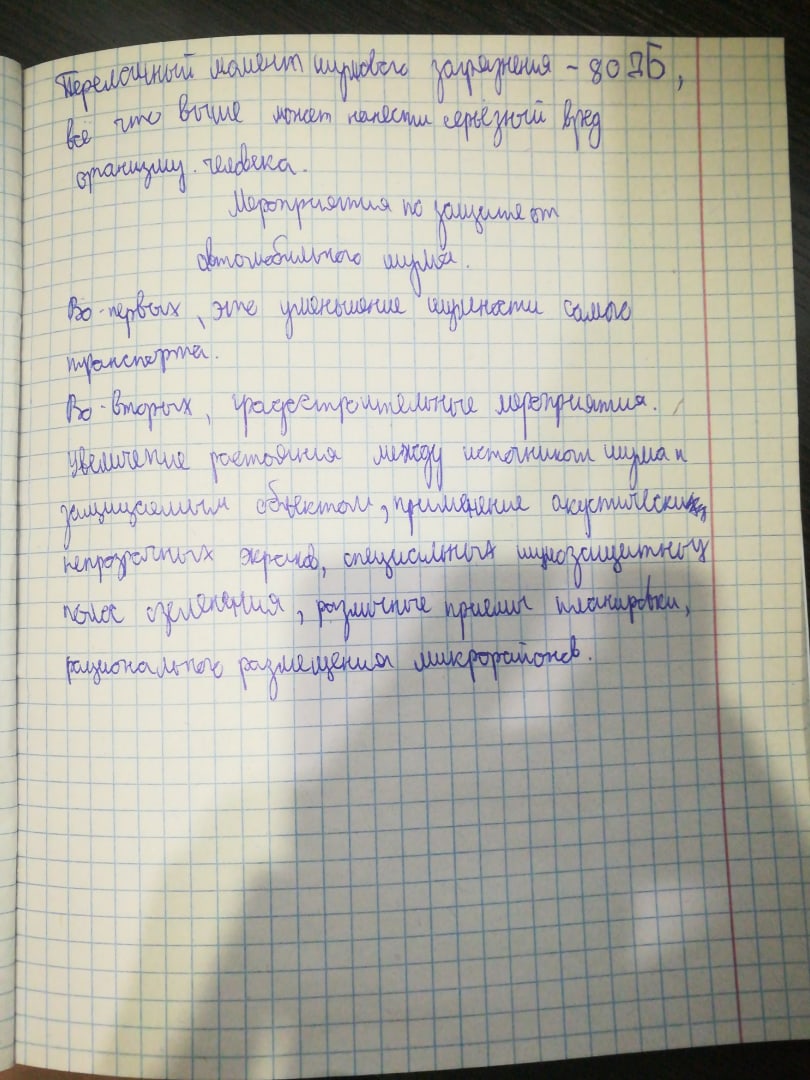 Переломный момент шумового загрязнения - 80 дБ,
всё что выше может нанести серьёзный вред
организму человека.
Мероприятия по защите от
автомобильного шума.
Во-первых, это уменьшение шумности самого
транспорта.
Во-вторых, градостроительные мероприятия.
Увеличение растояния между источником шума и
защищаемым объектом, применение акустически
непрозрачных экранов, специальных шумозащитных
полос озеленения, различные приемы планировки,
рационального размещения микрорайонов.